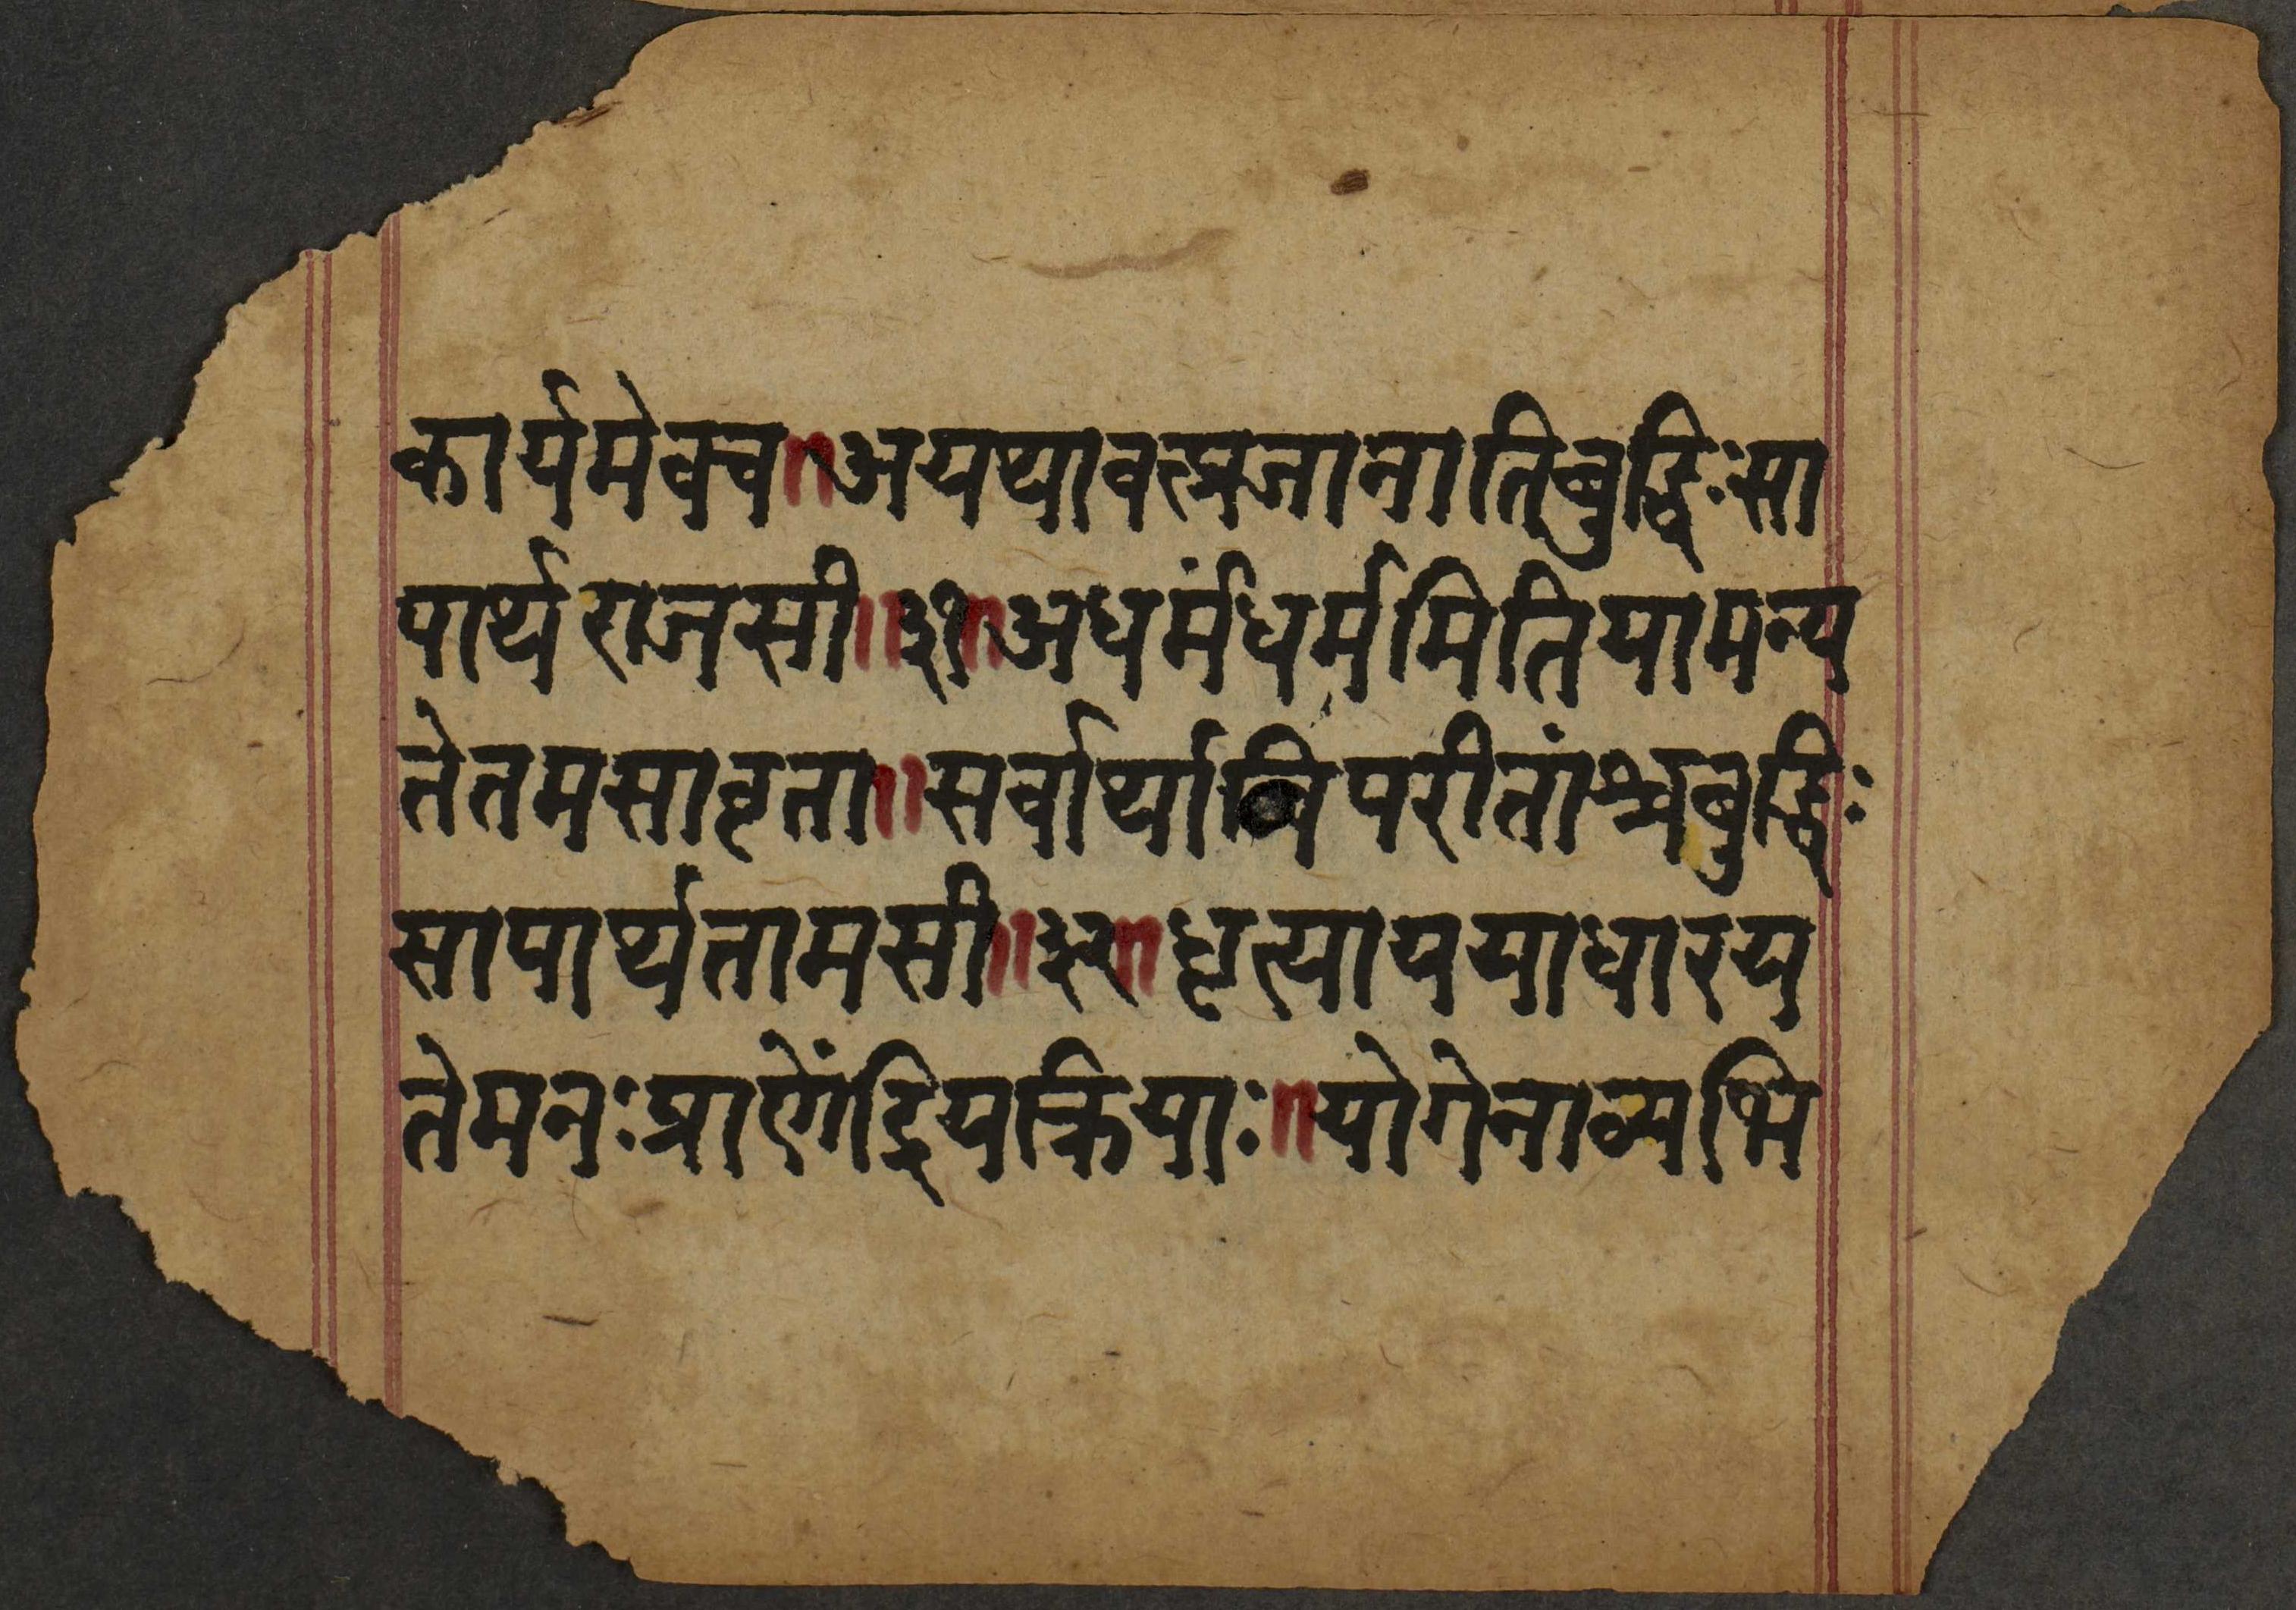 कार्यमेवच॥अयथावत्प्रजानातिबुद्धिःसा
पार्थराजसी॥३१॥अधर्मंधर्ममितियामन्य
तेतमसावृता॥सर्वार्थान्विपरीतांश्चबुद्धिः
सापार्थतामसी॥३२॥धृत्याययाधारय
तेमनःप्राणेंद्रियक्रियाः॥योगेनाव्यभि